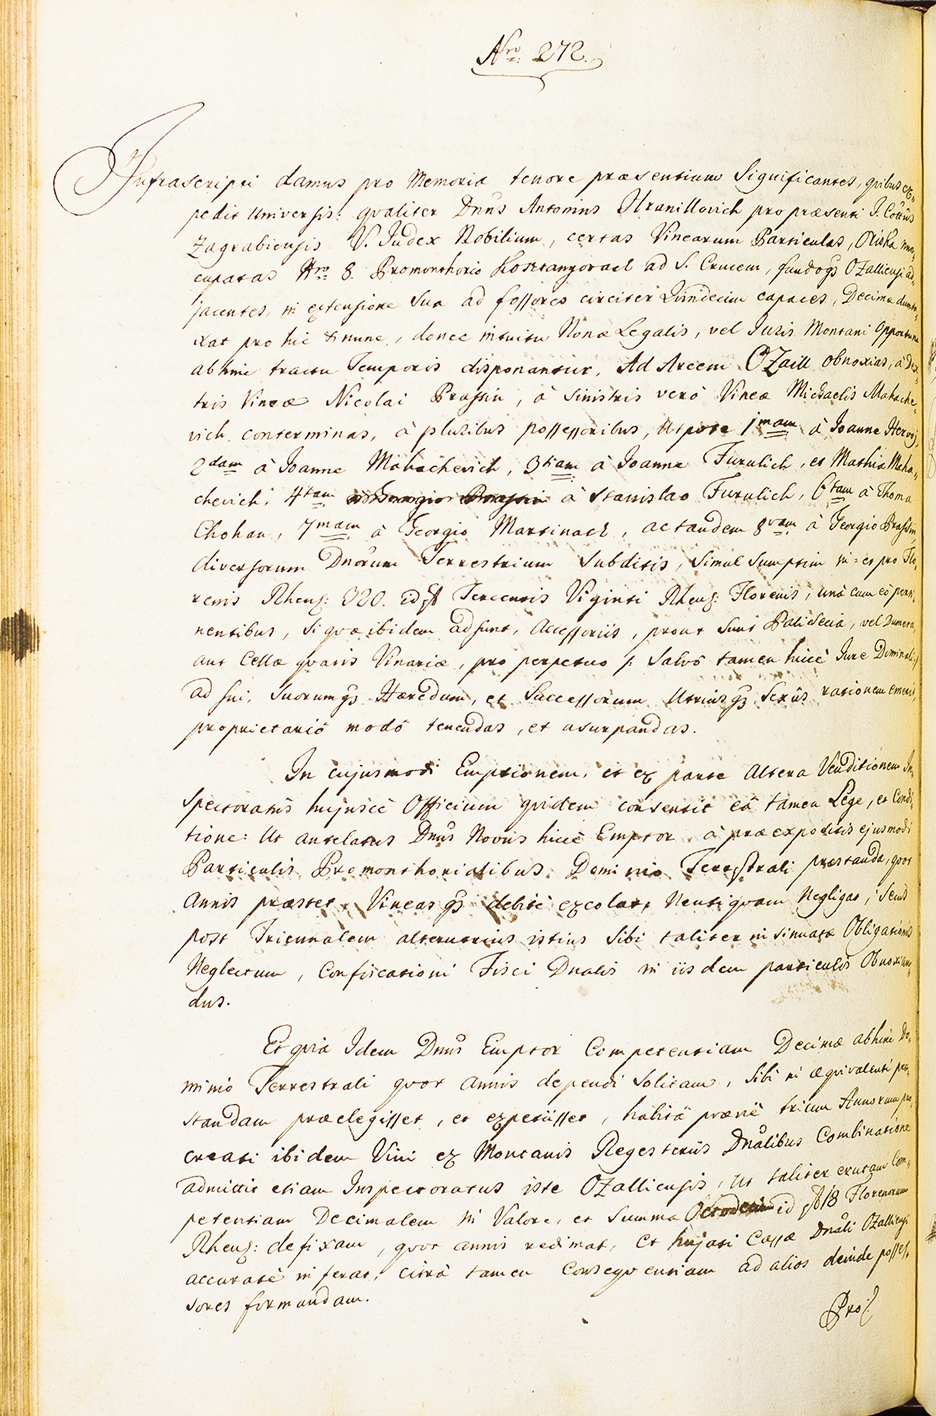 Nro. 272.
Infrascripti damus pro Memoria tenore præsentium Significantes, quibus ex-
pedit Universis: qualiter Dnus Antonius Uranillovich pro præsenti I. Cottus
Zagrabiensis V. Judex Nobilium, certas Vinearum Particulas,
cupatas Nro 8. Promonthorio ad S. Crucem, fundoqz Ozalliensi ad-
jacentes, in extensione Sua ad fossores circiter Quindecim capaces, Decimæ dunta-
xat pro hic & nunc, donec intuitu Nonæ Legalis, vel Juris Montani Opportune
abhinc tractu Temporis disponantur, Ad Arcem Ozaill obnoxias, a Dex-
tris Vineæ Nicolai Brassin, à Sinistris verò Vineæ Michaelis Mahache-
vich conterminas, à pluribus possessoribus, Utpote 1mam à Joanne
2dam à Joanne Mahachevich, 3tiam à Joanne Furulich, et Mathia Maha-
chevich, 4tam à Stanislao Furulich, 6tam à Thoma
Chohan, 7mam à Georgio Martinach, ac tandem 8vam à Georgio Brassin
diversorum Dnorum Terrestrium Subditis, Simul Sumptim in- et pro Flo-
renis Rheng: 320. id est Tercentis Viginti Rheng: Florenis, unà cum eò perti-
nentibus, si quæ ibidem adsunt, Accessoriis, prout Sunt
aut Cellæ quavis Vinariæ, pro perpetuo /: Salvô tamen hicce Jure Dominali:/
ad sui, Suorumqz Hæredum, et Successorum Utriusqz Sexûs rationem emerit,
proprietariô modô tenendas, et usurpandas.
In cujusmodi Emptionem, et ex parte Altera Venditionem In-
spectoratûs hujusce Officium quidem consentit eâ tamen Lege, et Condi-
tione: Ut antelatus Dnus Novus hicce Emptor à præexpositis ejusmodi
Particulis Promonthorialibus Dominio Terrestrali præstanda, quot
Annis præstet, Vineasqz debitè excolare Neutiquam Negligat, Secus
post Triennalem alterutrius istius Sibi taliter insinuatæ Obligationis
Neglectum, Confiscationi Fisci Dnalis in iisdem particulis Obnoxian-
dus.
Et quia Idem Dnus Emptor Competentiam Decimæ abhinc Do-
minio Terrestrali quot annis dependi Solitam, Sibi in æquivalenti præ-
standam præelegisset, et expetiisset, habitâ præviè trium Annorum pro-
creati ibidem Vini ex Montanis Regestrris Dnalibus Combinatione
admittit etiam Inspectoratus iste Ozalliensis, Ut taliter erutam Com-
petentiam Decimalem in Valore, et Summa Octodecim id est 18 Florenorum
Rheng: defixam, quot annis redimat, et hujati Cassæ Dnali Ozalliensi
accuratè inferat, citrà tamen Consequentiam ad alios deinde posses-
sores formandam.
Pro